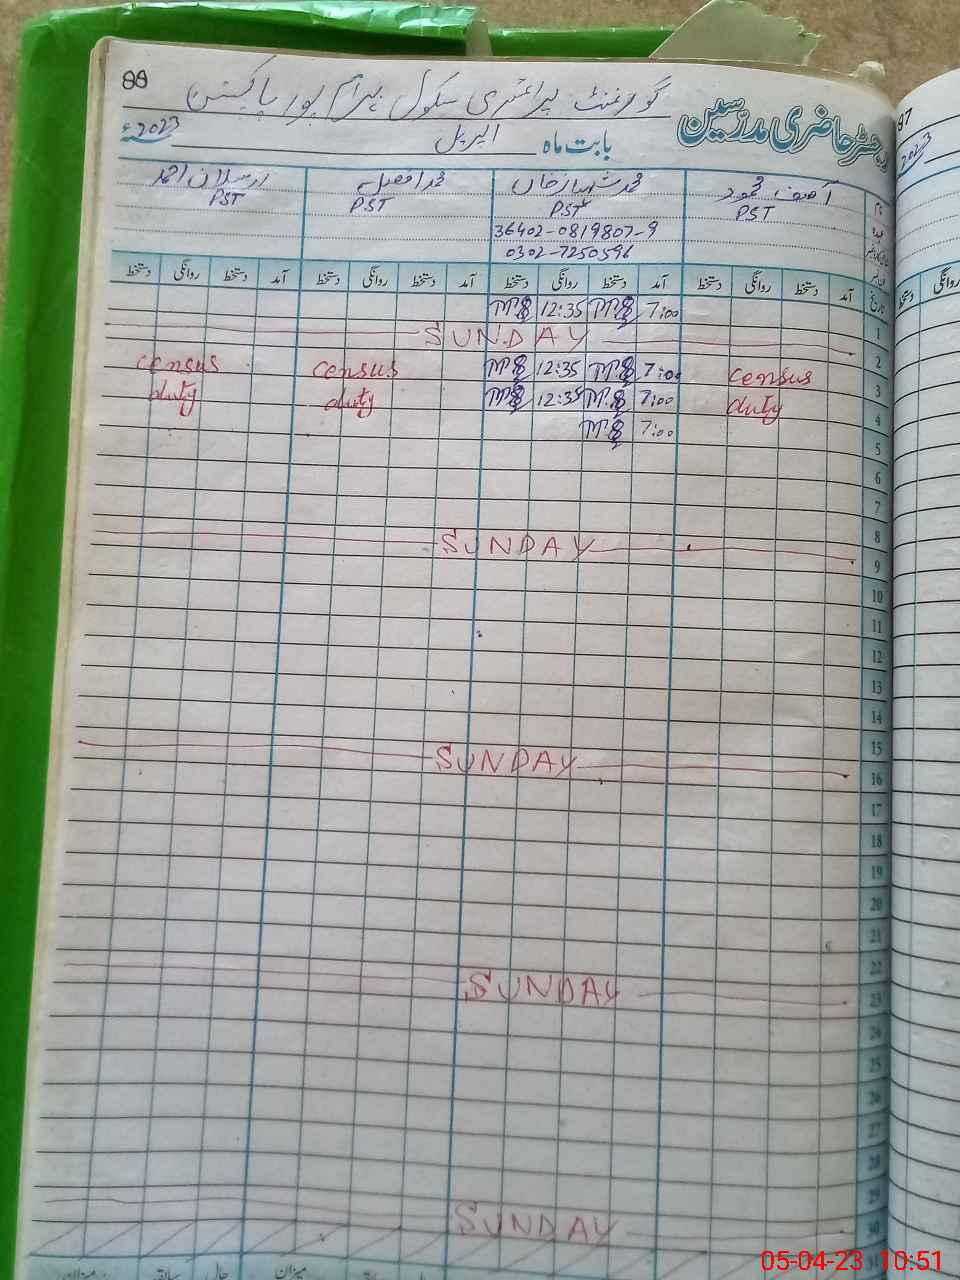 88
گورنمنٹ پرائمری سکول بہرام پور پاکپتن
رجسٹر حاضری مدرسین
بابت ماہ اپریل 2023ء
آصف محمود محمد شہباز خاں محمد افضل ارسلان احمد
PST PST PST PST
36402-0819807-9
0302-7250596
تاریخ آمد دستخط روانگی دستخط آمد دستخط روانگی دستخط آمد دستخط روانگی دستخط آمد دستخط روانگی دستخط
1 7:00 12:35
2 SUNDAY
3 census 7:00 12:35 census census
4 duty 7:00 12:35 duty duty
5 7:00
6
7
8
9 SUNDAY
10
11
12
13
14
15
16 SUNDAY
17
18
19
20
21
22
23 SUNDAY
24
25
26
27
28
29
30 SUNDAY
31
میزان سابقہ حال میزان
97
2023
روانگی دستخط
05-04-23 10:51